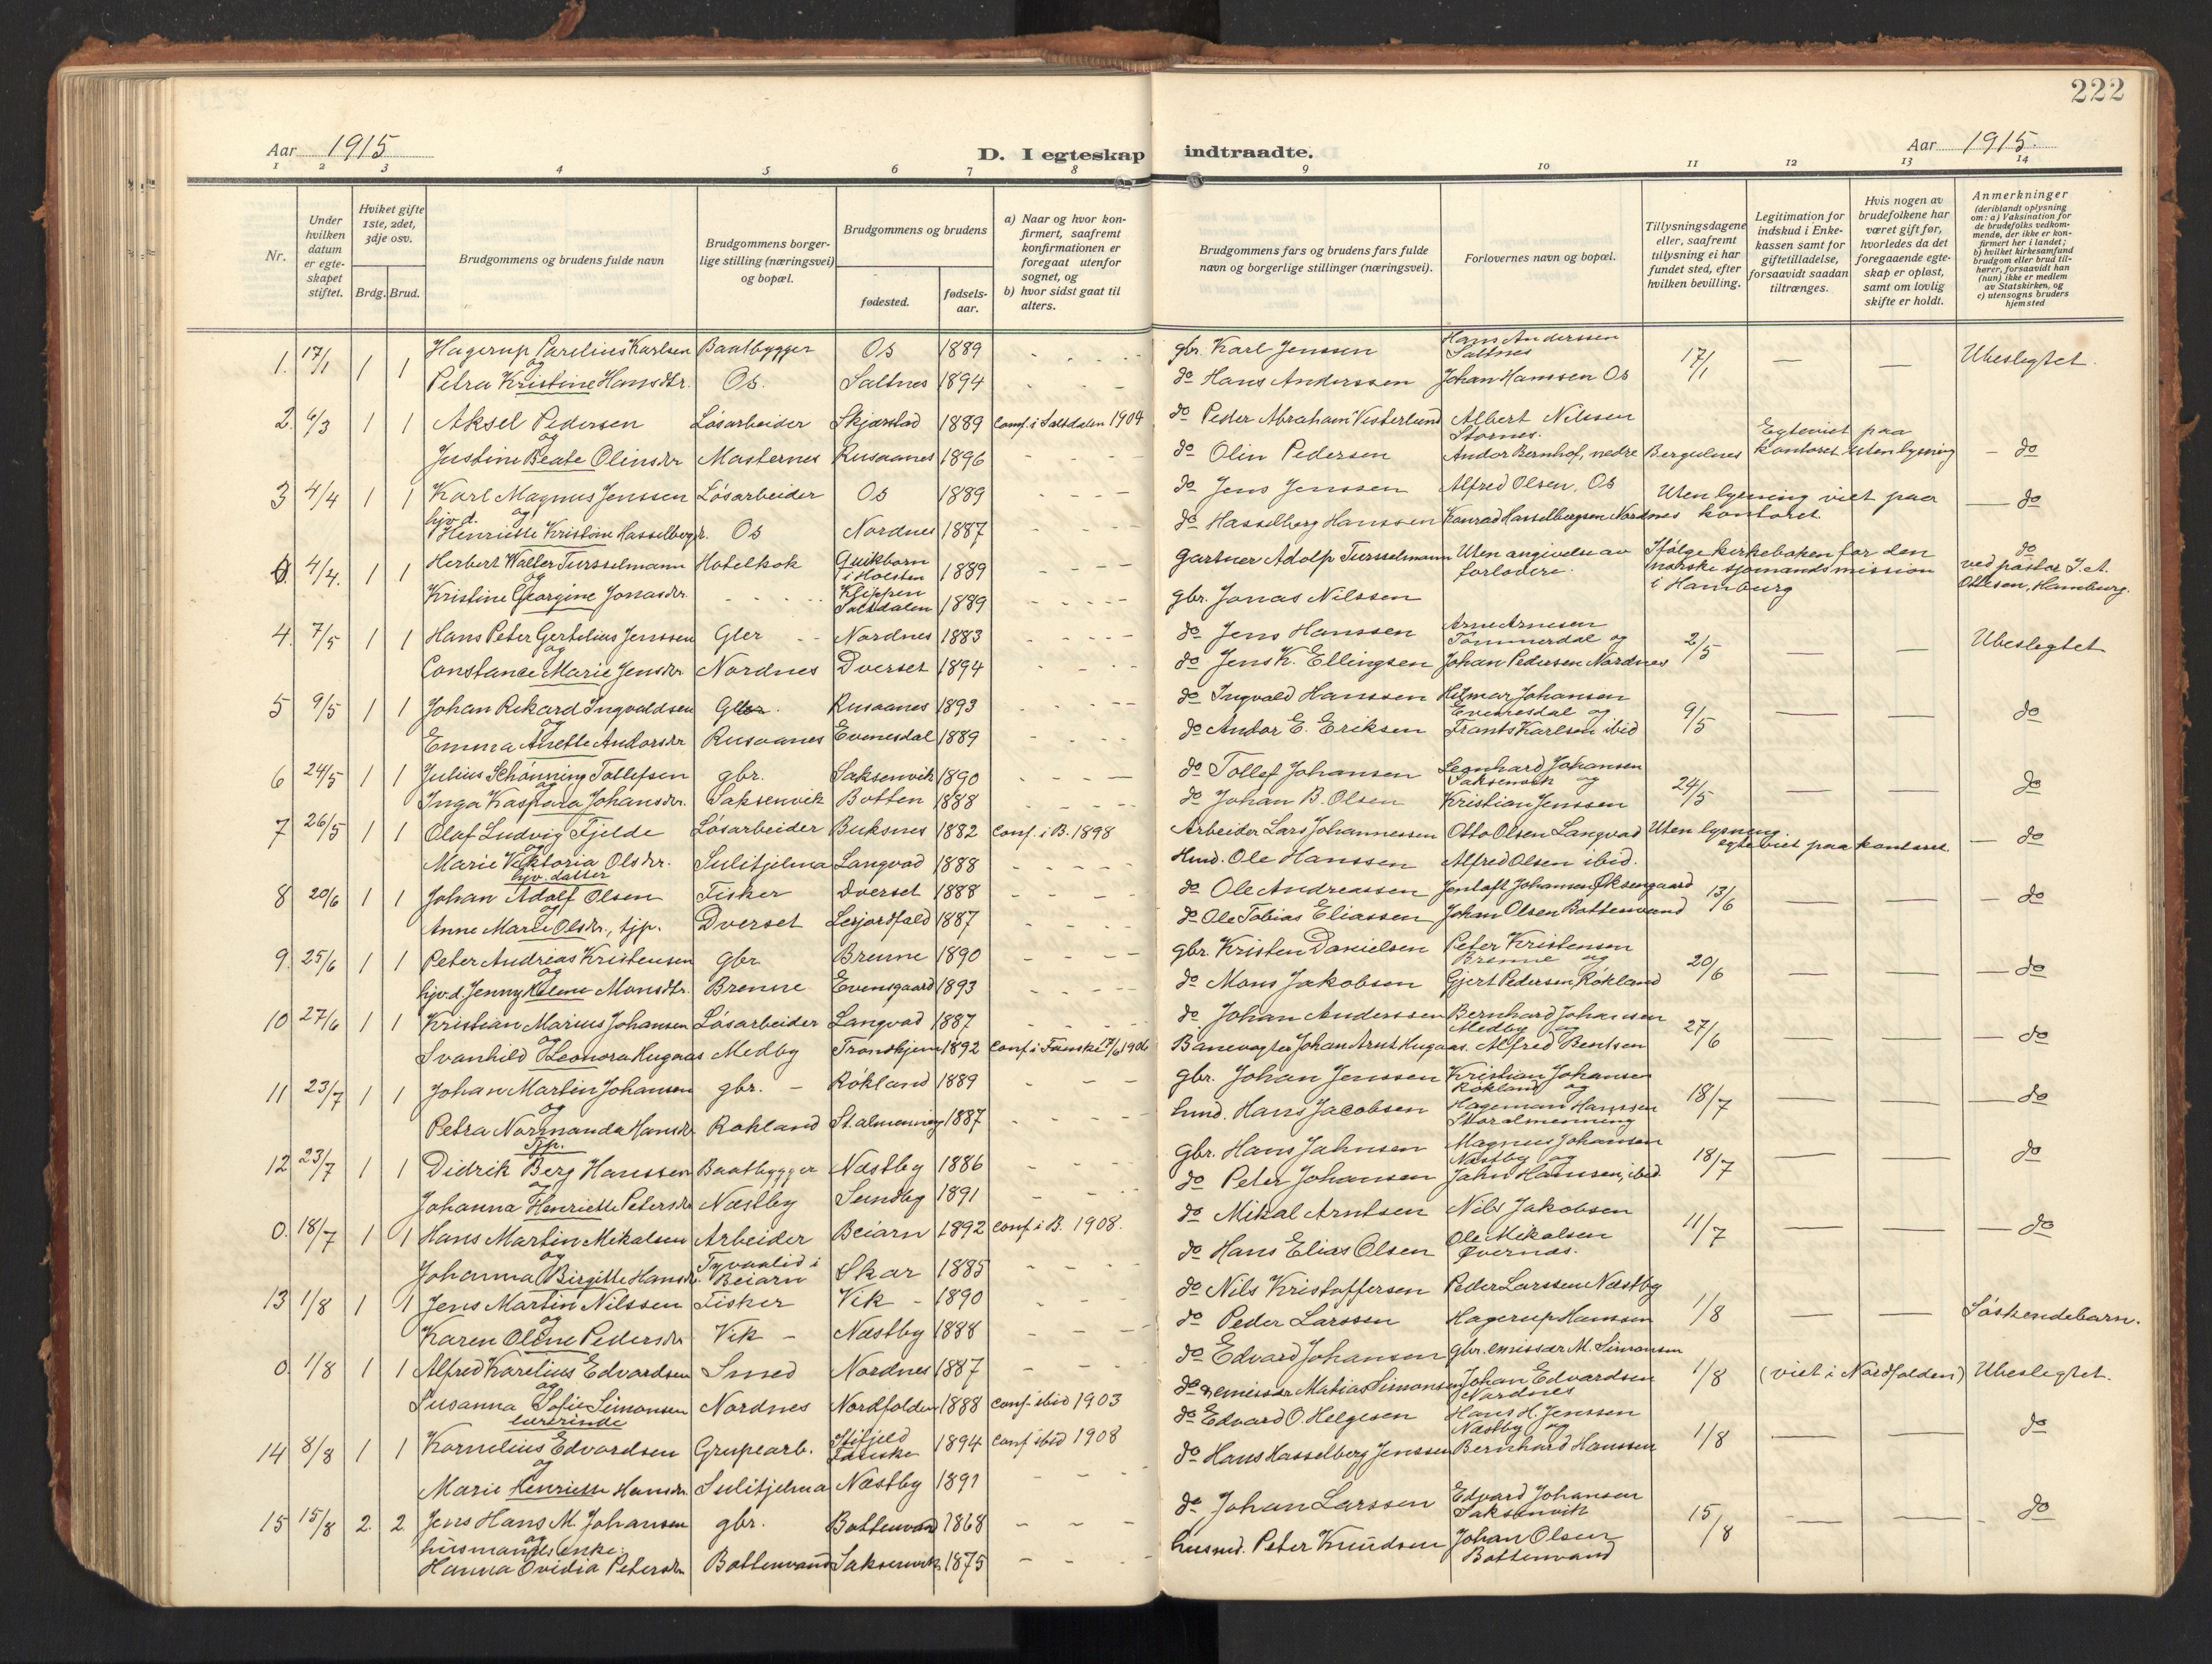 222
Aar 1915
D. I egteskap indtraadte.
Aar 1915.
1 2 3 4 5 6 7 8 9 10 11 12 13 14
Nr.
Under hvilken datum er egteskapet stiftet.
Hviket gifte 1ste, 2det, 3dje osv.
Brdg. Brud.
Brudgommens og brudens fulde navn
Brudgommens borgerlige stilling (næringsvei) og bopæl.
Brudgommens og brudens
fødested.
fødselsaar.
a) Naar og hvor konfirmert, saafremt konfirmationen er foregaat utenfor sognet, og
b) hvor sidst gaat til alters.
Brudgommens fars og brudens fars fulde navn og borgerlige stillinger (næringsvei).
Forlovernes navn og bopæl.
Tillysningsdagene eller, saafremt tillysning ei har fundet sted, efter hvilken bevilling.
Legitimation for indskud i Enkekassen samt for giftetilladelse, forsaavidt saadan tiltrænges.
Hvis nogen av brudefolkene har været gift før, hvorledes da det foregaaende egteskap er opløst, samt om lovlig skifte er holdt.
Anmerkninger (deriblandt oplysning om: a) Vaksination for de brudefolks vedkommende, der ikke er konfirmert her i landet; b) hvilket kirkesamfund brudgom eller brud tilhører, forsaavidt han (hun) ikke er medlem av Statskirken, og c) utensogns bruders hjemsted
1. 17/1 1 1 Hagerup Parelius Karlsen Baatbygger Os 1889 gbr. Karl Jenssen Hans Anderssen Saltnes 17/1 — — Ubeslegtet.
og
Petra Kristine Hansdtr. Os. Saltnes 1894 do Hans Anderssen Johan Hanssen Os
2. 6/3 1 1 Aksel Pedersen Løsarbeider Skjærstad 1889 Conf. i Saltdalen 1904 do Peder Abraham Vesterlund Albert Nilssen Stornes.
og
Justine Beate Olinsdtr Masternes Rusaanes 1896 do Olin Pedersen Andor Bernhof, nedre Bergulnes Egteviet paa kontoret uten lysning — do
3 4/4 1 1 Karl Magnus Jenssen Løsarbeider Os 1889 do Jens Jenssen Alfred Olsen, Os Uten lysning viet paa kontoret — do
hjv. d. og
Henriette Kristine Hasselbergsdr. Os Nordnes 1887 do Hasselberg Hanssen Konrad Hasselbergsen Nordnes
0. 4/4. 1 1 Herbert Walter Turssselmann Hotelkok Quikborn i Holsten 1889 Gartner Adolf Tursselmann Uten angivelse av forlovere. Ifølge kirkeboken for den norske sjømandsmission i Hamburg do ved pastor J. A. Ottesen, Hamburg.
og
Kristine Georgine Jonasdr. Klippen Saltdalen 1889 gbr. Jonas Nilssen
4. 7/5 1 1 Hans Peter Gertelius Jenssen Gbr Nordnes 1883 do Jens Hanssen Arne Arnesen Tømmerdal og 2/5 — — Ubeslegtet
og
Constance Marie Jensdr Nordnes Dverset 1894 do Jens K. Ellingsen Johan Pedersen Nordnes
5 9/5 1 1 Johan Rikard Ingvaldsen Gbr. Rusaanes 1893 do Ingvald Hanssen Hilmar Johansen Evenesdal og 9/5 — — do
og
Emma Anette Andorsdr Rusaanes Evenesdal 1889 do Andor E. Eriksen Frants Karlsen ibid
6 24/5 1 1 Julius Schønning Tollefsen gbr. Saksenvik 1890 do Tollef Johansen Leonhard Johansen Saksenvik og 24/5 — — do
og
Inga Kaspara Johansdr. Saksenvik Botten 1888 do Johan B. Olsen Kristian Jenssen
7 26/5 1 1 Olaf Ludvig Fjelde Løsarbeider Buksnes 1882 Conf. i B. 1898 Arbeider Lars Johannessen Otto Olsen Langvad Uten lysning. egteviet paa kontoret — do
og
Marie Viktoria Olsdr. Sulitjelma Langvad 1888 Husd. Ole Hanssen Alfred Olsen ibid.
hjv. datter
8 20/6 1 1 Johan Adolf Olsen Fisker Dverset 1888 do Ole Andreassen Jentoft Johansen Øksengaard 13/6 — — do
og
Anne Marie Olsdr., tjp. Dverset Lesjordfald 1887 do Ole Tobias Eliassen Johan Olsen Bottenvand
9. 25/6 1 1 Peter Andreas Kristensen gbr Brenne 1890 gbr. Kristen Danielsen Peter Kristensen Brenne og 20/6 — — do
og
hjv. d. Jenny Helene Monsdtr. Brenne Evensgaard 1893 do Mons Jakobsen Gjert Pedersen, Røkland
10 27/6 1 1 Kristian Marius Johansen Løsarbeider Langvad 1887 do Johan Anderssen Bernhard Johansen Medby og 27/6 — — do
og
Svanhild Eleonora Hugaas Medby Trondhjem 1892 Conf. i Fauske 17/6 1906 Banevogter Johan Arnt Hugaas. Alfred Bentsen
11 23/7 1 1 Johan Martin Johansen gbr. Røkland 1889 gbr. Johan Jenssen Kristian Johansen Røkland og 18/7 — — do
og
Petra Normanda Hansdr Rokland St.almenning 1887 husd. Hans Jacobsen Hageman Hanssen Storalmenning
Tjp.
12 23/7 1 1 Didrik Berg Hanssen Baatbygger Næstby 1886 gbr. Hans Jahnsen Magnus Johansen Næstby og 18/7 — — do
og
Johanna Henriette Petersdr Næstby Sundby 1891 do Peter Johansen Jahn Hanssen, ibid
0. 18/7 1 1 Hans Martin Mikalsen Arbeider Beiarn 1892 Conf. i B. 1908. do Mikal Arntsen Nils Jakobsen 11/7 — — do
og
Johanna Birgitte Hansdr. Tvervaalid i Beiarn Skar 1885 do Hans Elias Olsen Ole Mikalsen Øvernæs.
13 1/8 1 1 Jens Martin Nilssen Fisker Vik 1890 do Nils Kristoffersen Peder Larssen Næstby 1/8 — — Søskendebarn.
og
Karen Oline Pedersdr Vik Næstby 1888 do Peder Larssen Hagerup Hanssen
0. 1/8 1 1 Alfred Karelius Edvardsen Smed Nordnes 1887 do Edvard Johansen gbr. emissær M. Simonsen 1/8 (viet i Nordfolden) Ubeslegtet.
og
Susanna Sofie Simonsen Nordnes Nordfolden 1888 Conf. ibid 1903 do emissær Matias Simonsen Johan Edvardsen Nordnes
lærerinde
14 8/8 1 1 Kornelius Edvardsen Grubearb. Stifjeld Fauske 1894 Conf ibid 1908 do Edvard O. Helgesen Hans H. Jenssen Næstby og 1/8 — — do
og
Marie Henriette Hansdr. Sulitjelma Næstby 1891 do Hans Hasselberg Jenssen Bernhard Hanssen
15 15/8 2. 2 Jens Hans M. Johansen gbr. Bottenvand 1868 do Johan Larssen Edvard Johansen Saksenvik 15/8 — — do
og
husmandsenke.
Hanna Ovidia Petersdr Bottenvand Saksenvik 1875 husmd. Peter Knudsen Johan Olsen Bottenvand